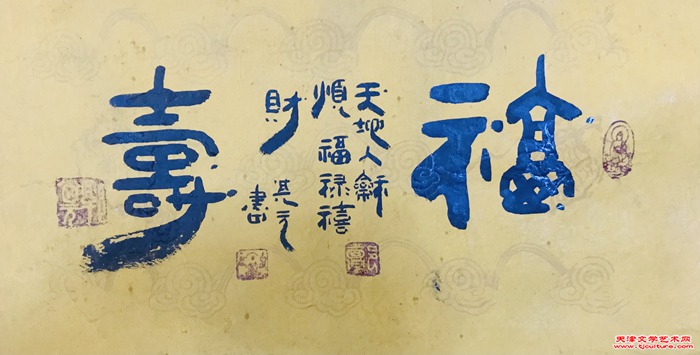 福
天地人龢
順福禄禧
財其
書
壽
天津文学艺术网
www.tjculture.com